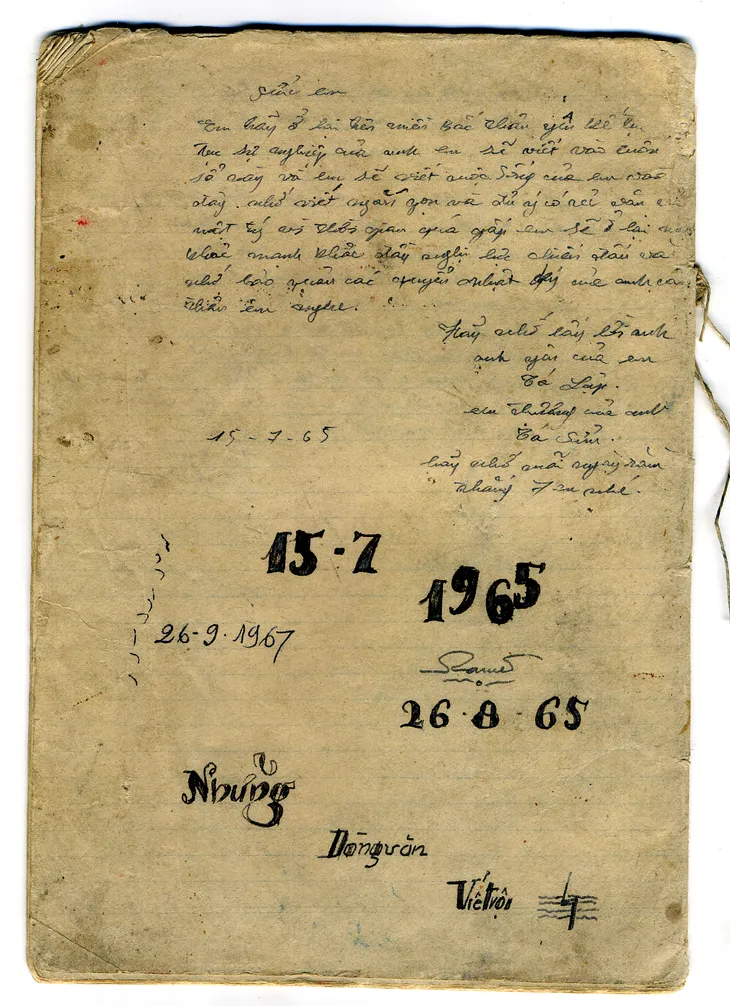 Gửi em
Em hãy ở lại trên miền Bắc thân yêu kế
tục sự nghiệp của anh em sẽ viết vào cuốn
sổ này và em sẽ viết cuộc sống của em vào
đây. nhớ viết ngắn gọn và đủ ý
vì thời gian quá gấp em sẽ ở lại
khỏe mạnh đầy nghị lực chiến đấu và
nhớ bảo quản các quyển nhật ký của anh
em nghe.
Hãy nhớ lấy lời anh
anh yêu của em
Tá Lập.
em thương của anh
Tá Sửu.
15-7-65
hãy nhớ mãi ngày rằm
tháng 7 em nhé.
15-7
1965
26-9-1967
26-8-65
Những
Dòng văn
Viết vội